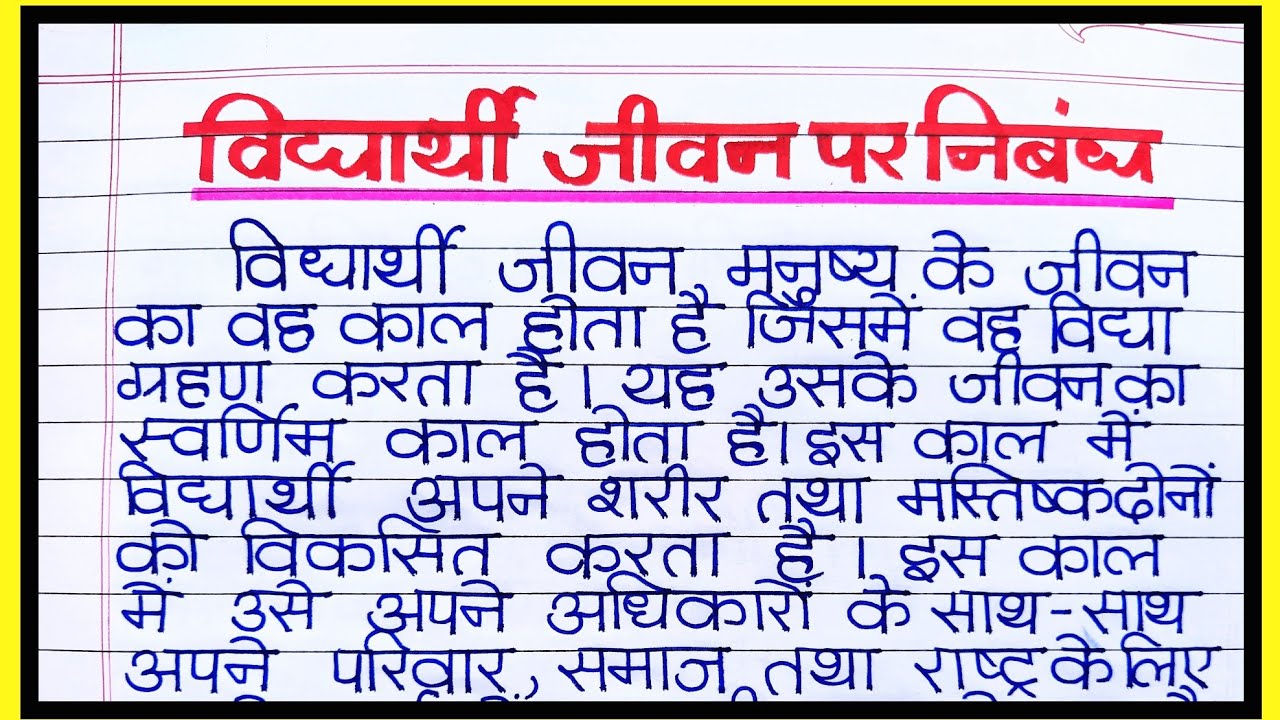 विद्यार्थी जीवन पर निबंध
विद्यार्थी जीवन मनुष्य के जीवन
का वह काल होता है जिसमें वह विद्या
ग्रहण करता है। यह उसके जीवन का
स्वर्णिम काल होता है। इस काल में
विद्यार्थी अपने शरीर तथा मस्तिष्क दोनों
को विकसित करता है। इस काल
में उसे अपने अधिकारों के साथ-साथ
अपने परिवार, समाज तथा राष्ट्र के लिए